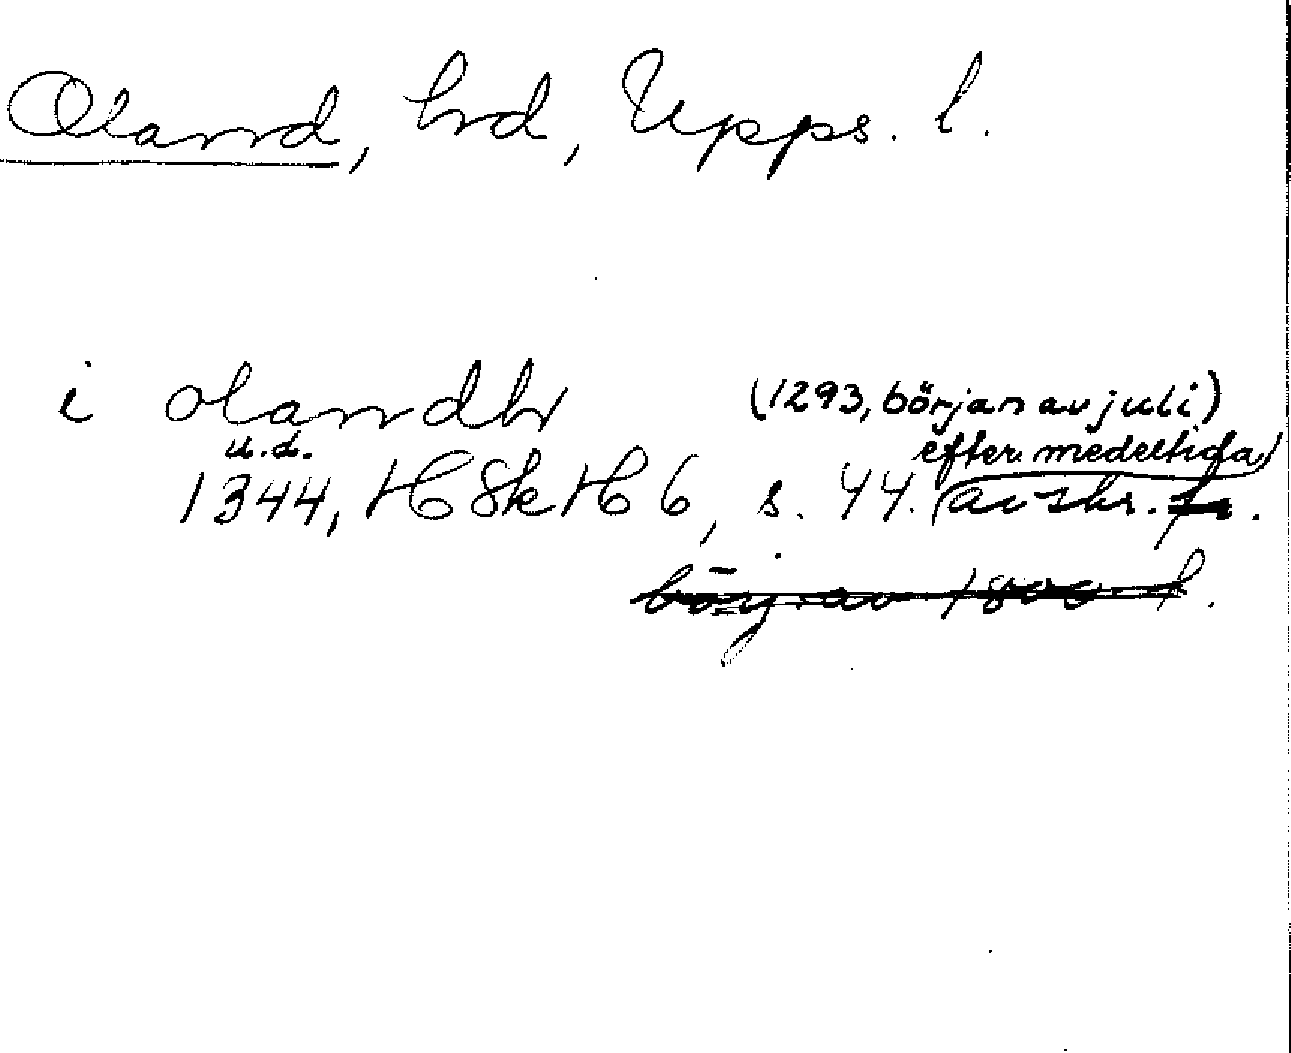 Oland, hrd, Upps. l.
i olandh (1293, början av juli)
u.d. efter medeltida
1344, HSkH 6, s. 44. avskr. fr.
börj. av 1800-t.